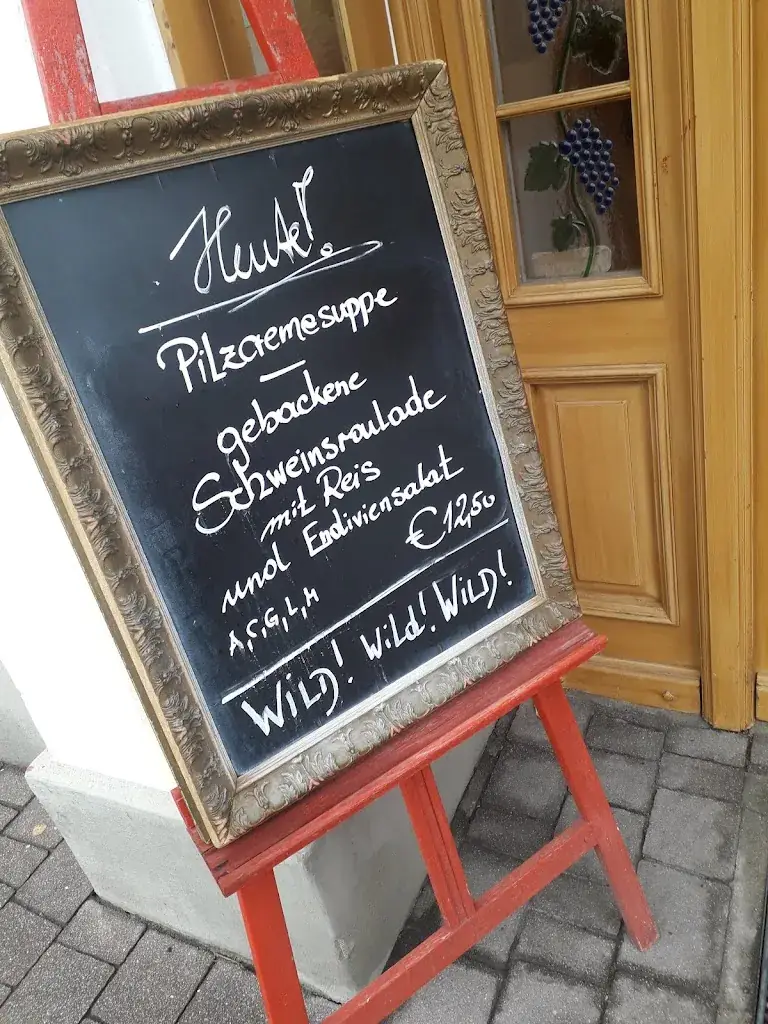 Heute!
Pilzcremesuppe
–
gebackene
Schweinsroulade
mit Reis
und Endiviensalat
€ 12,50
A, C, G, L, M
WILD! Wild! WILD!